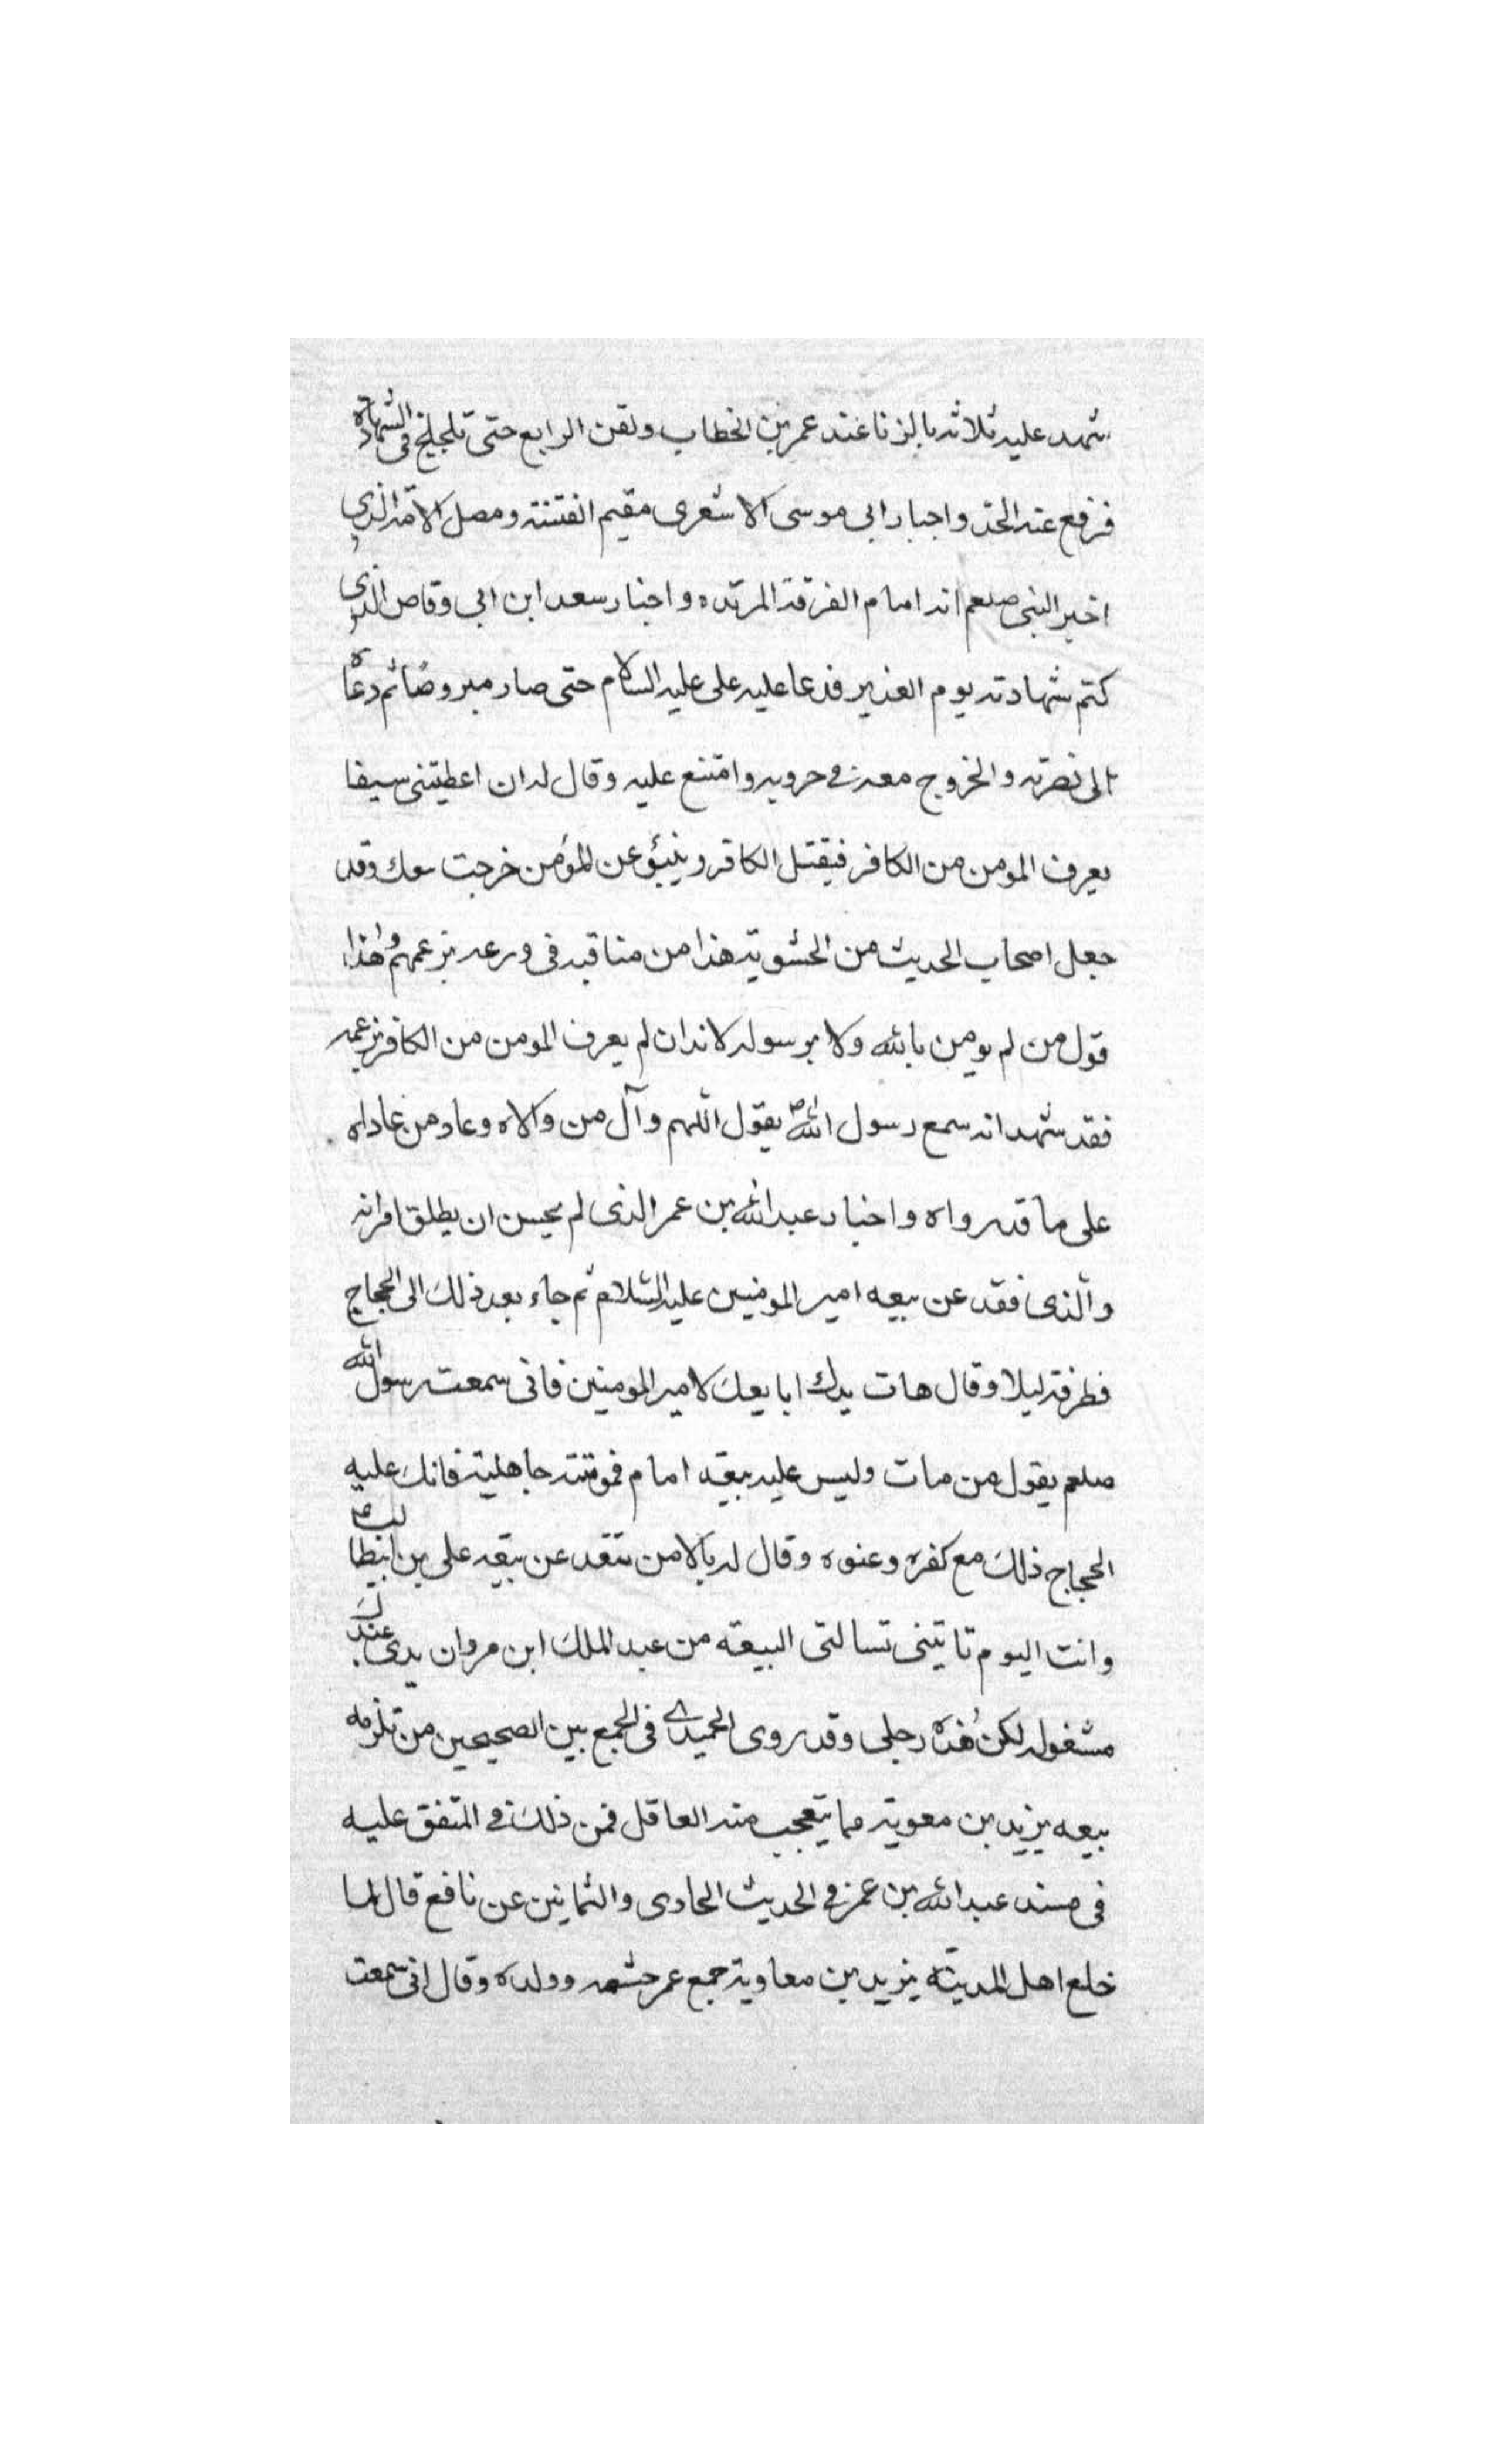 شهد عليه ثلاثه بالزنا عند عمر بن الخطاب ولقن الرابع حتى تلجلج فى الشهادة
فرفع عنه الحد واخبار ابى موسى الاشعرى مقيم الفتنة ومضل الامة الذى
اخبر النبى صلعم انه امام الفرقة المرتده واخبار سعد ابن ابى وقاص الذى
كتم شهادته يوم الغدير فدعا عليه على عليه السلام حتى صار مبروصا ثم دعاه
الى نصرته والخروج معه فى حروبه وامتنع عليه وقال له ان اعطيتنى سيفا
يعرف المومن من الكافر فيقتل الكافر وينبؤ عن المؤمن خرجت معك وقد
جعل اصحاب الحديث من الحشوية هذا من مناقبه فى ورعه بزعمهم وهذا
قول من لم يومن بالله ولا برسوله لانه ان لم يعرف المومن من الكافر بزعمه
فقد شهد انه سمع رسول الله ص يقول اللهم وآل من والاه وعاد من عاداه
على ما قد رواه واخبار عبد الله بن عمر الذى لم يحسن ان يطلق امراته
والذى فقد عن بيعه امير المومنين عليه السلام ثم جاء بعد ذلك الى الحجاج
فطرقه ليلا وقال هات يدك ابايعك لامير المومنين فانى سمعت رسول الله
صلعم يقول من مات وليس عليه بيعة امام فموتته جاهلية فانك عليه
الحجاج ذلك مع كفره وعنوه وقال له بالامس تتقد عن بيعة على بن ابيطالب ع
وانت اليوم تاتينى تسالنى البيعة من عبد الملك ابن مروان يدى عندك
مشغوله لكن هذه رجلى وقد روى الحميدى فى الجمع بين الصحيحين من تلزمه
بيعه يزيد بن معوية مما يتعجب منه العاقل فمن ذلك فى المتفق عليه
فى مسند عبد الله بن عمر فى الحديث الحادى والثمانين عن نافع قال لما
خلع اهل المدينة يزيد بن معاوية جمع عمر حشمه وولده وقال انى سمعت